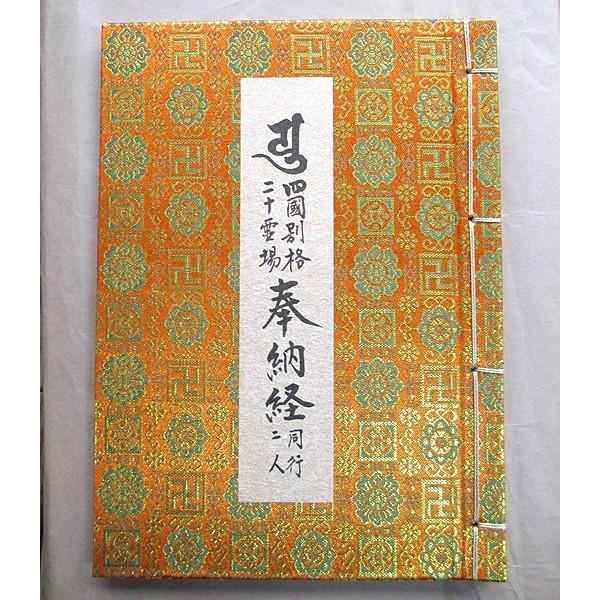 𑖧𑖲
四國別格
二十霊場
奉納経
同行
二人